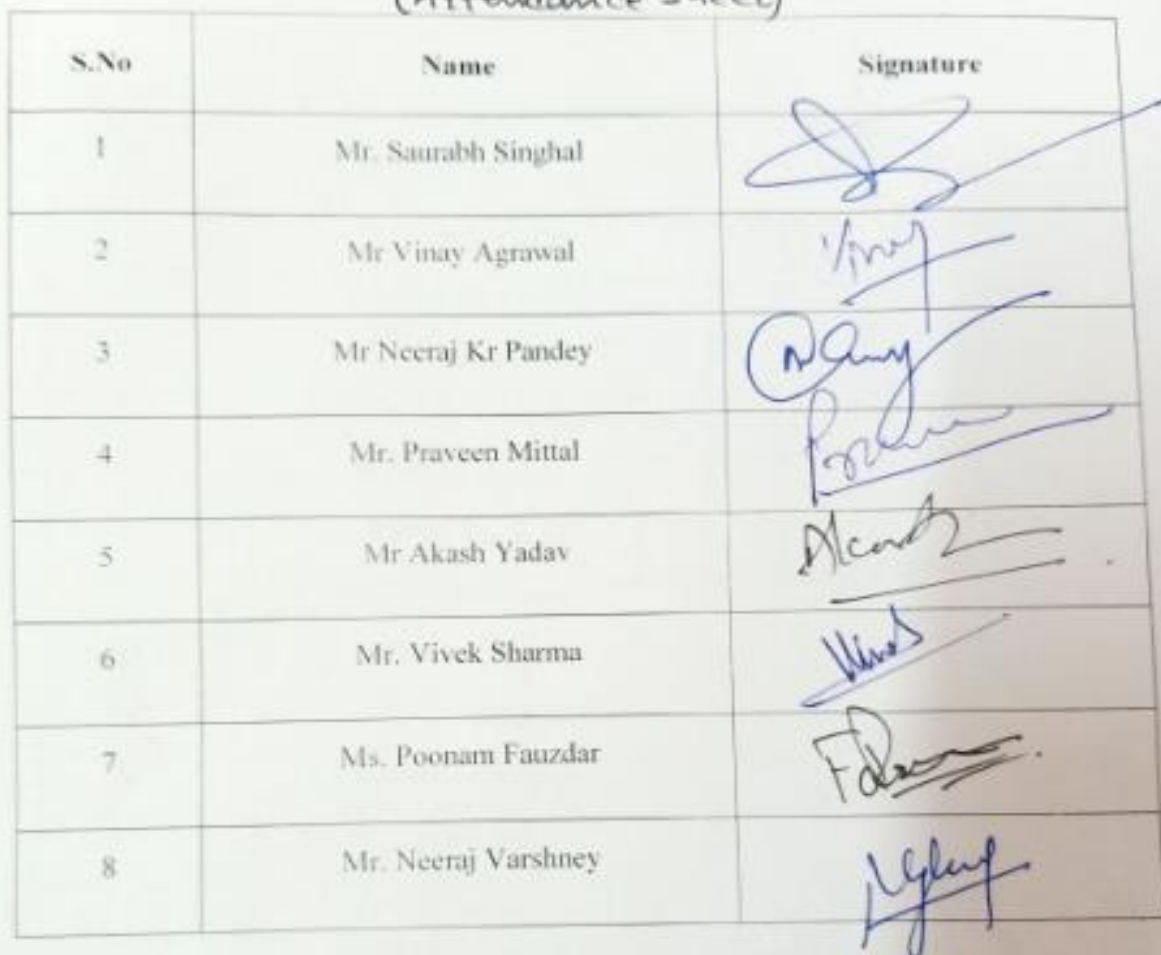 (Attendance Sheet)
S.No Name Signature
1 Mr. Saurabh Singhal
2 Mr Vinay Agrawal Vinay
3 Mr Neeraj Kr Pandey
4 Mr. Praveen Mittal
5 Mr Akash Yadav Akash
6 Mr. Vivek Sharma
7 Ms. Poonam Fauzdar
8 Mr. Neeraj Varshney